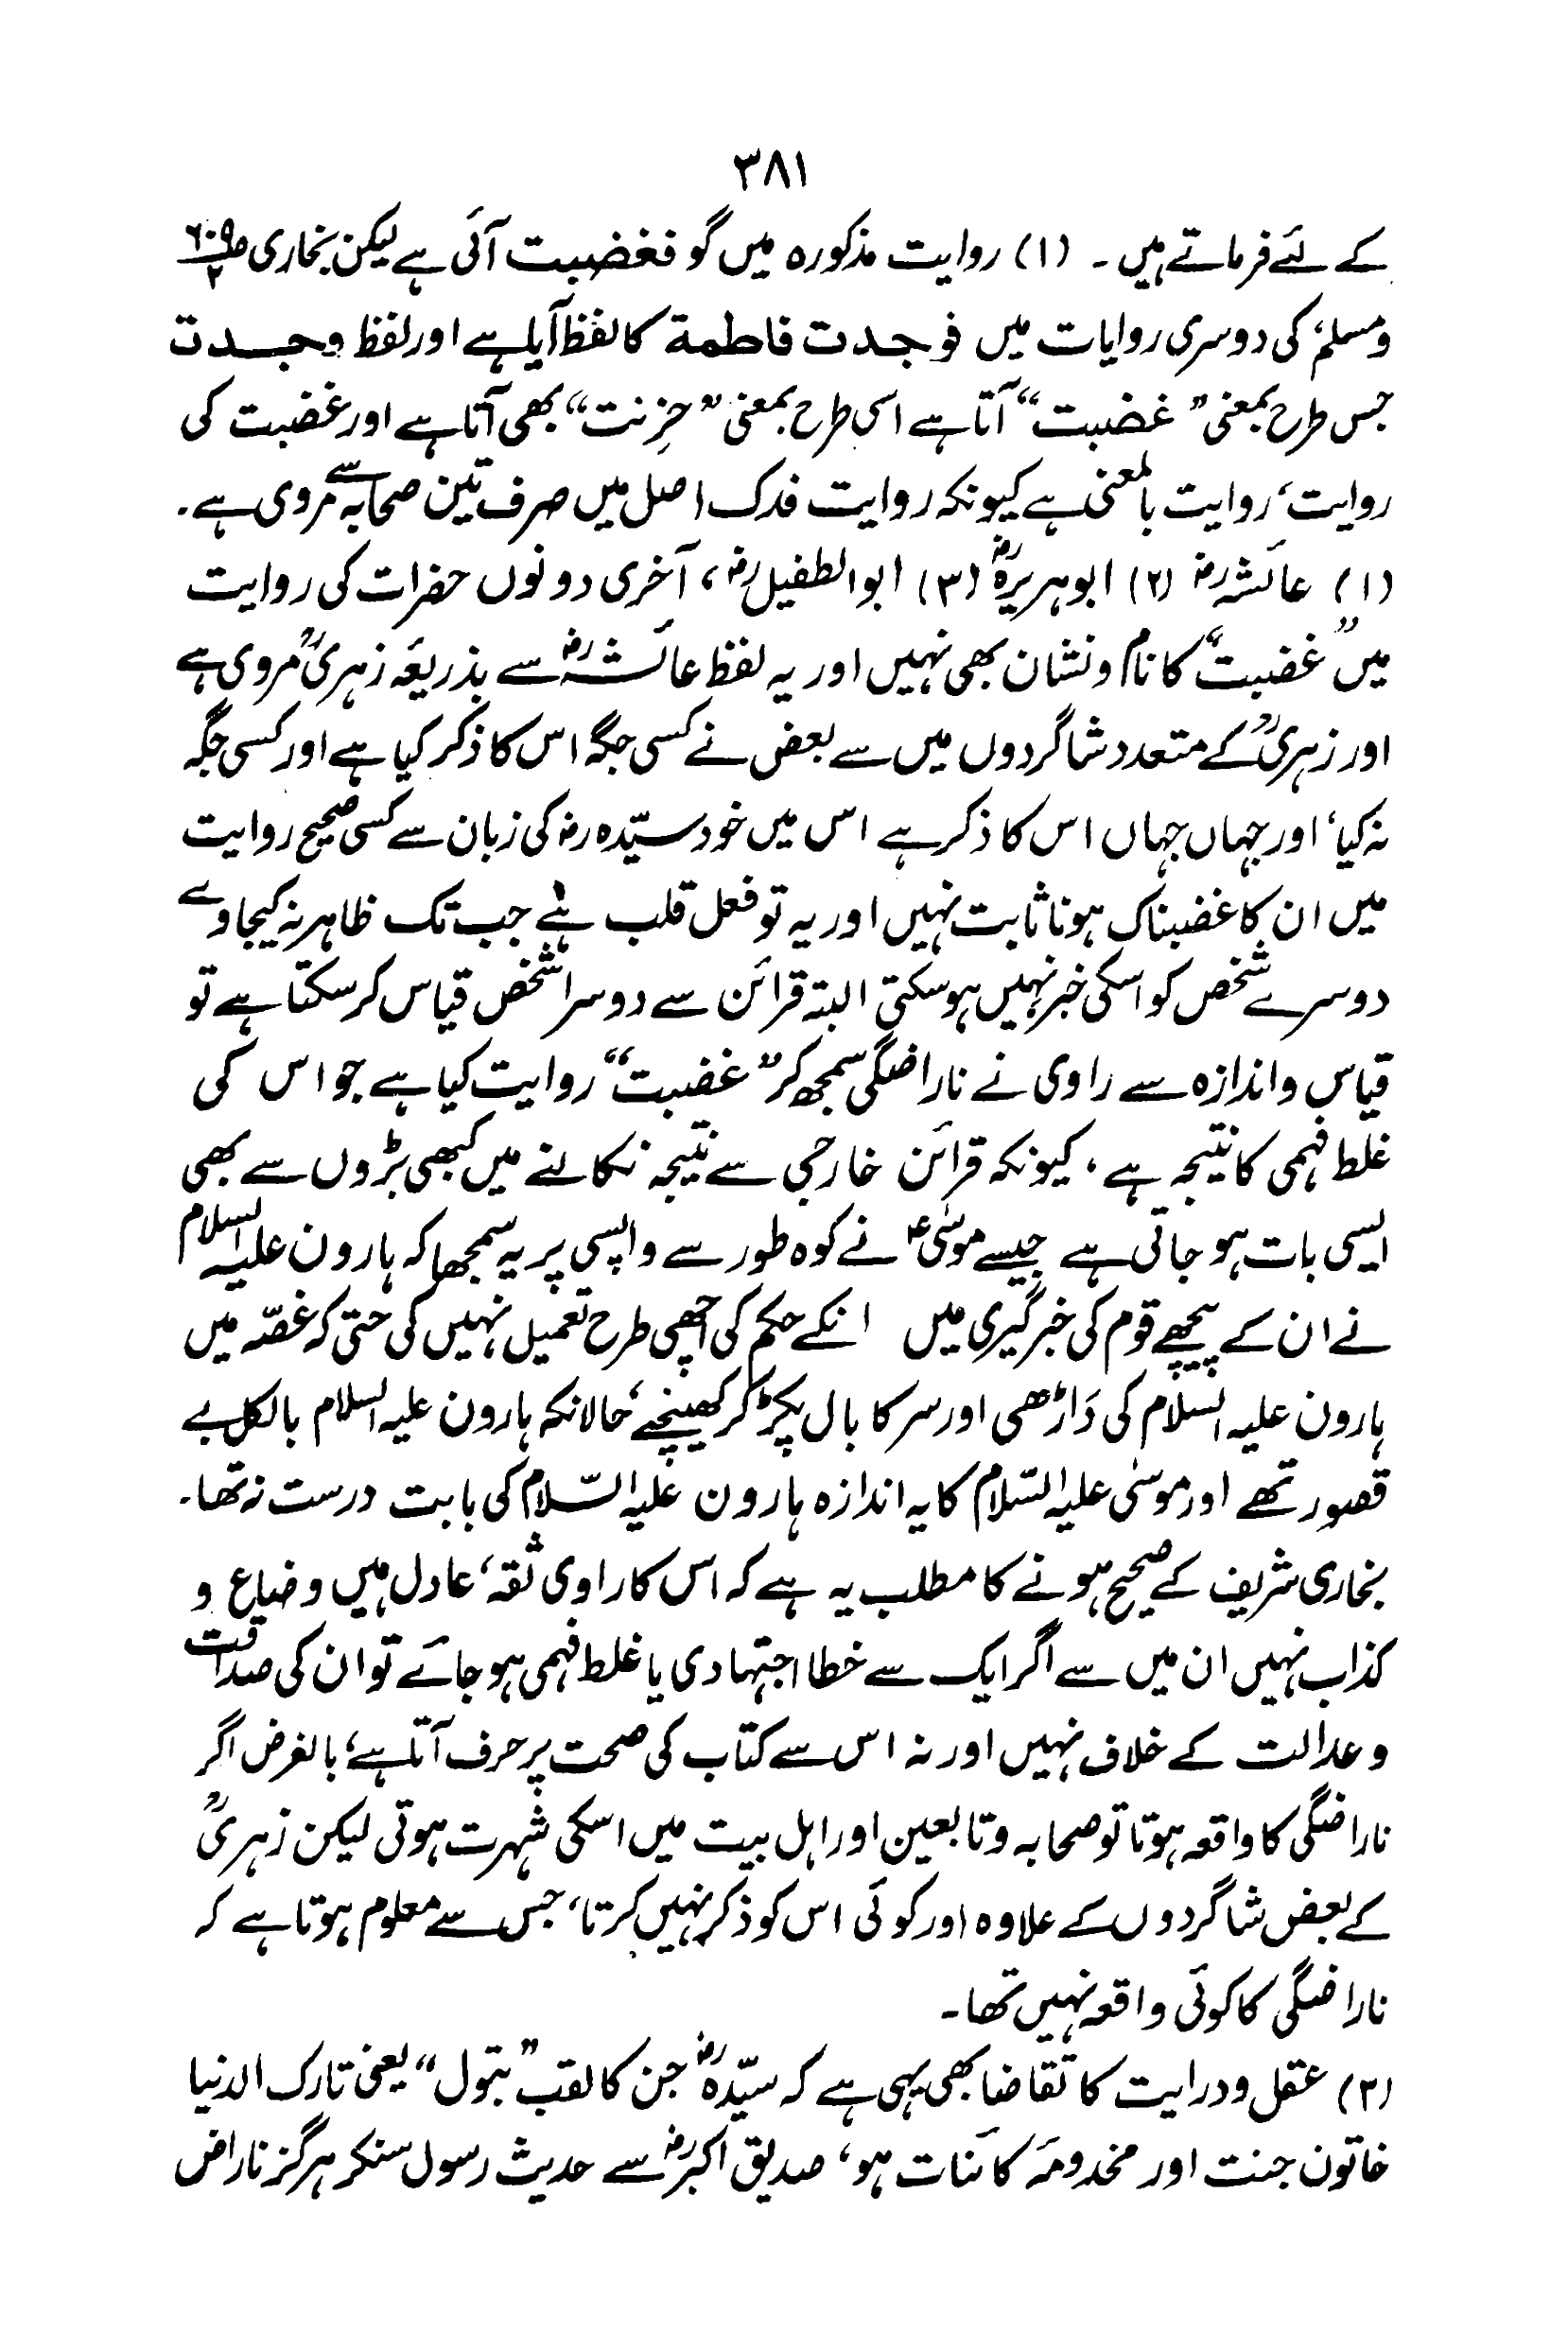 ۳۸۱
کے لئے فرماتے ہیں ۔ (۱) روایت مذکورہ میں گو فغضبت آئی ہے لیکن بخاری ص ۶۰۹ / ۲
ومسلم کی دوسری روایات میں فوجدت فاطمة کا لفظ آیا ہے اور لفظ وجدت
جس طرح بمعنی ”غضبت“ آتا ہے اسی طرح بمعنی ”حزنت“ بھی آتا ہے اور غضبت کی
روایت، روایت بالمعنی ہے کیونکہ روایت فدک اصل میں صرف تین صحابہ سے مروی ہے۔
(۱) عائشہ رض (۲) ابوہریرہ رض (۳) ابوالطفیل رض، آخری دونوں حضرات کی روایت
میں ”غضبت“ کا نام و نشان بھی نہیں اور یہ لفظ عائشہ رض سے بذریعہ زہریؒ مروی ہے
اور زہریؒ کے متعدد شاگردوں میں سے بعض نے کسی جگہ اس کا ذکر کیا ہے اور کسی جگہ
نہ کیا، اور جہاں جہاں اس کا ذکر ہے اس میں خود سیّدہ رض کی زبان سے کسی صحیح روایت
میں ان کا غضبناک ہونا ثابت نہیں اور یہ تو فعل قلب ہے جب تک ظاہر نہ کیجاوے
دوسرے شخص کو اسکی خبر نہیں ہو سکتی البتہ قرائن سے دوسرا شخص قیاس کر سکتا ہے تو
قیاس و اندازہ سے راوی نے ناراضگی سمجھ کر ”غضبت“ روایت کیا ہے جو اس کی
غلط فہمی کا نتیجہ ہے، کیونکہ قرائن خارجی سے نتیجہ نکالنے میں کبھی بڑوں سے بھی
ایسی بات ہو جاتی ہے جیسے موسٰیؑ نے کوہ طور سے واپسی پر یہ سمجھا کہ ہارون علیہ السلام
نے ان کے پیچھے قوم کی خبر گیری میں انکے حکم کی اچھی طرح تعمیل نہیں کی حتی کہ غصّہ میں
ہارون علیہ السلام کی داڑھی اور سر کا بال پکڑ کر کھینچے، حالانکہ ہارون علیہ السلام بالکل بے
قصور تھے اور موسٰی علیہ السّلام کا یہ اندازہ ہارون علیہ السّلام کی بابت درست نہ تھا۔
بخاری شریف کے صحیح ہونے کا مطلب یہ ہے کہ اس کا راوی ثقہ، عادل ہیں وضاع و
کذاب نہیں ان میں سے اگر ایک سے خطا اجتہادی یا غلط فہمی ہو جائے تو ان کی صداقت
و عدالت کے خلاف نہیں اور نہ اس سے کتاب کی صحت پر حرف آتا ہے، بالغرض اگر
ناراضگی کا واقعہ ہوتا تو صحابہ و تابعین اور اہل بیت میں اسکی شہرت ہوتی لیکن زہریؒ
کے بعض شاگردوں کے علاوہ اور کوئی اس کو ذکر نہیں کرتا، جس سے معلوم ہوتا ہے کہ
ناراضگی کا کوئی واقعہ نہیں تھا۔
(۲) عقل و درایت کا تقاضا بھی یہی ہے کہ سیّدہ رض جن کا لقب ”بتول“ یعنی تارک الدنیا
خاتون جنت اور مخدومۂ کائنات ہو، صدیق اکبر رض سے حدیث رسول سنکر ہرگز ناراض